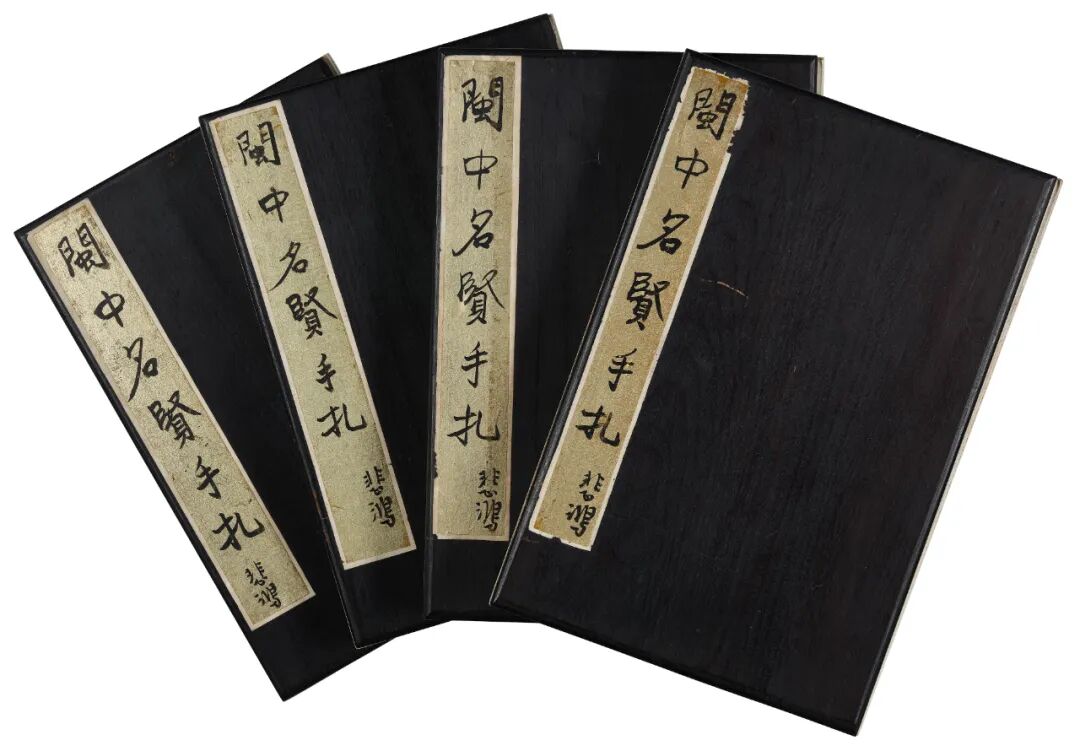 閩中名賢手札
悲鴻
閩中名賢手札
悲鴻
閩中名賢手札
悲鴻
閩中名賢手札
悲鴻